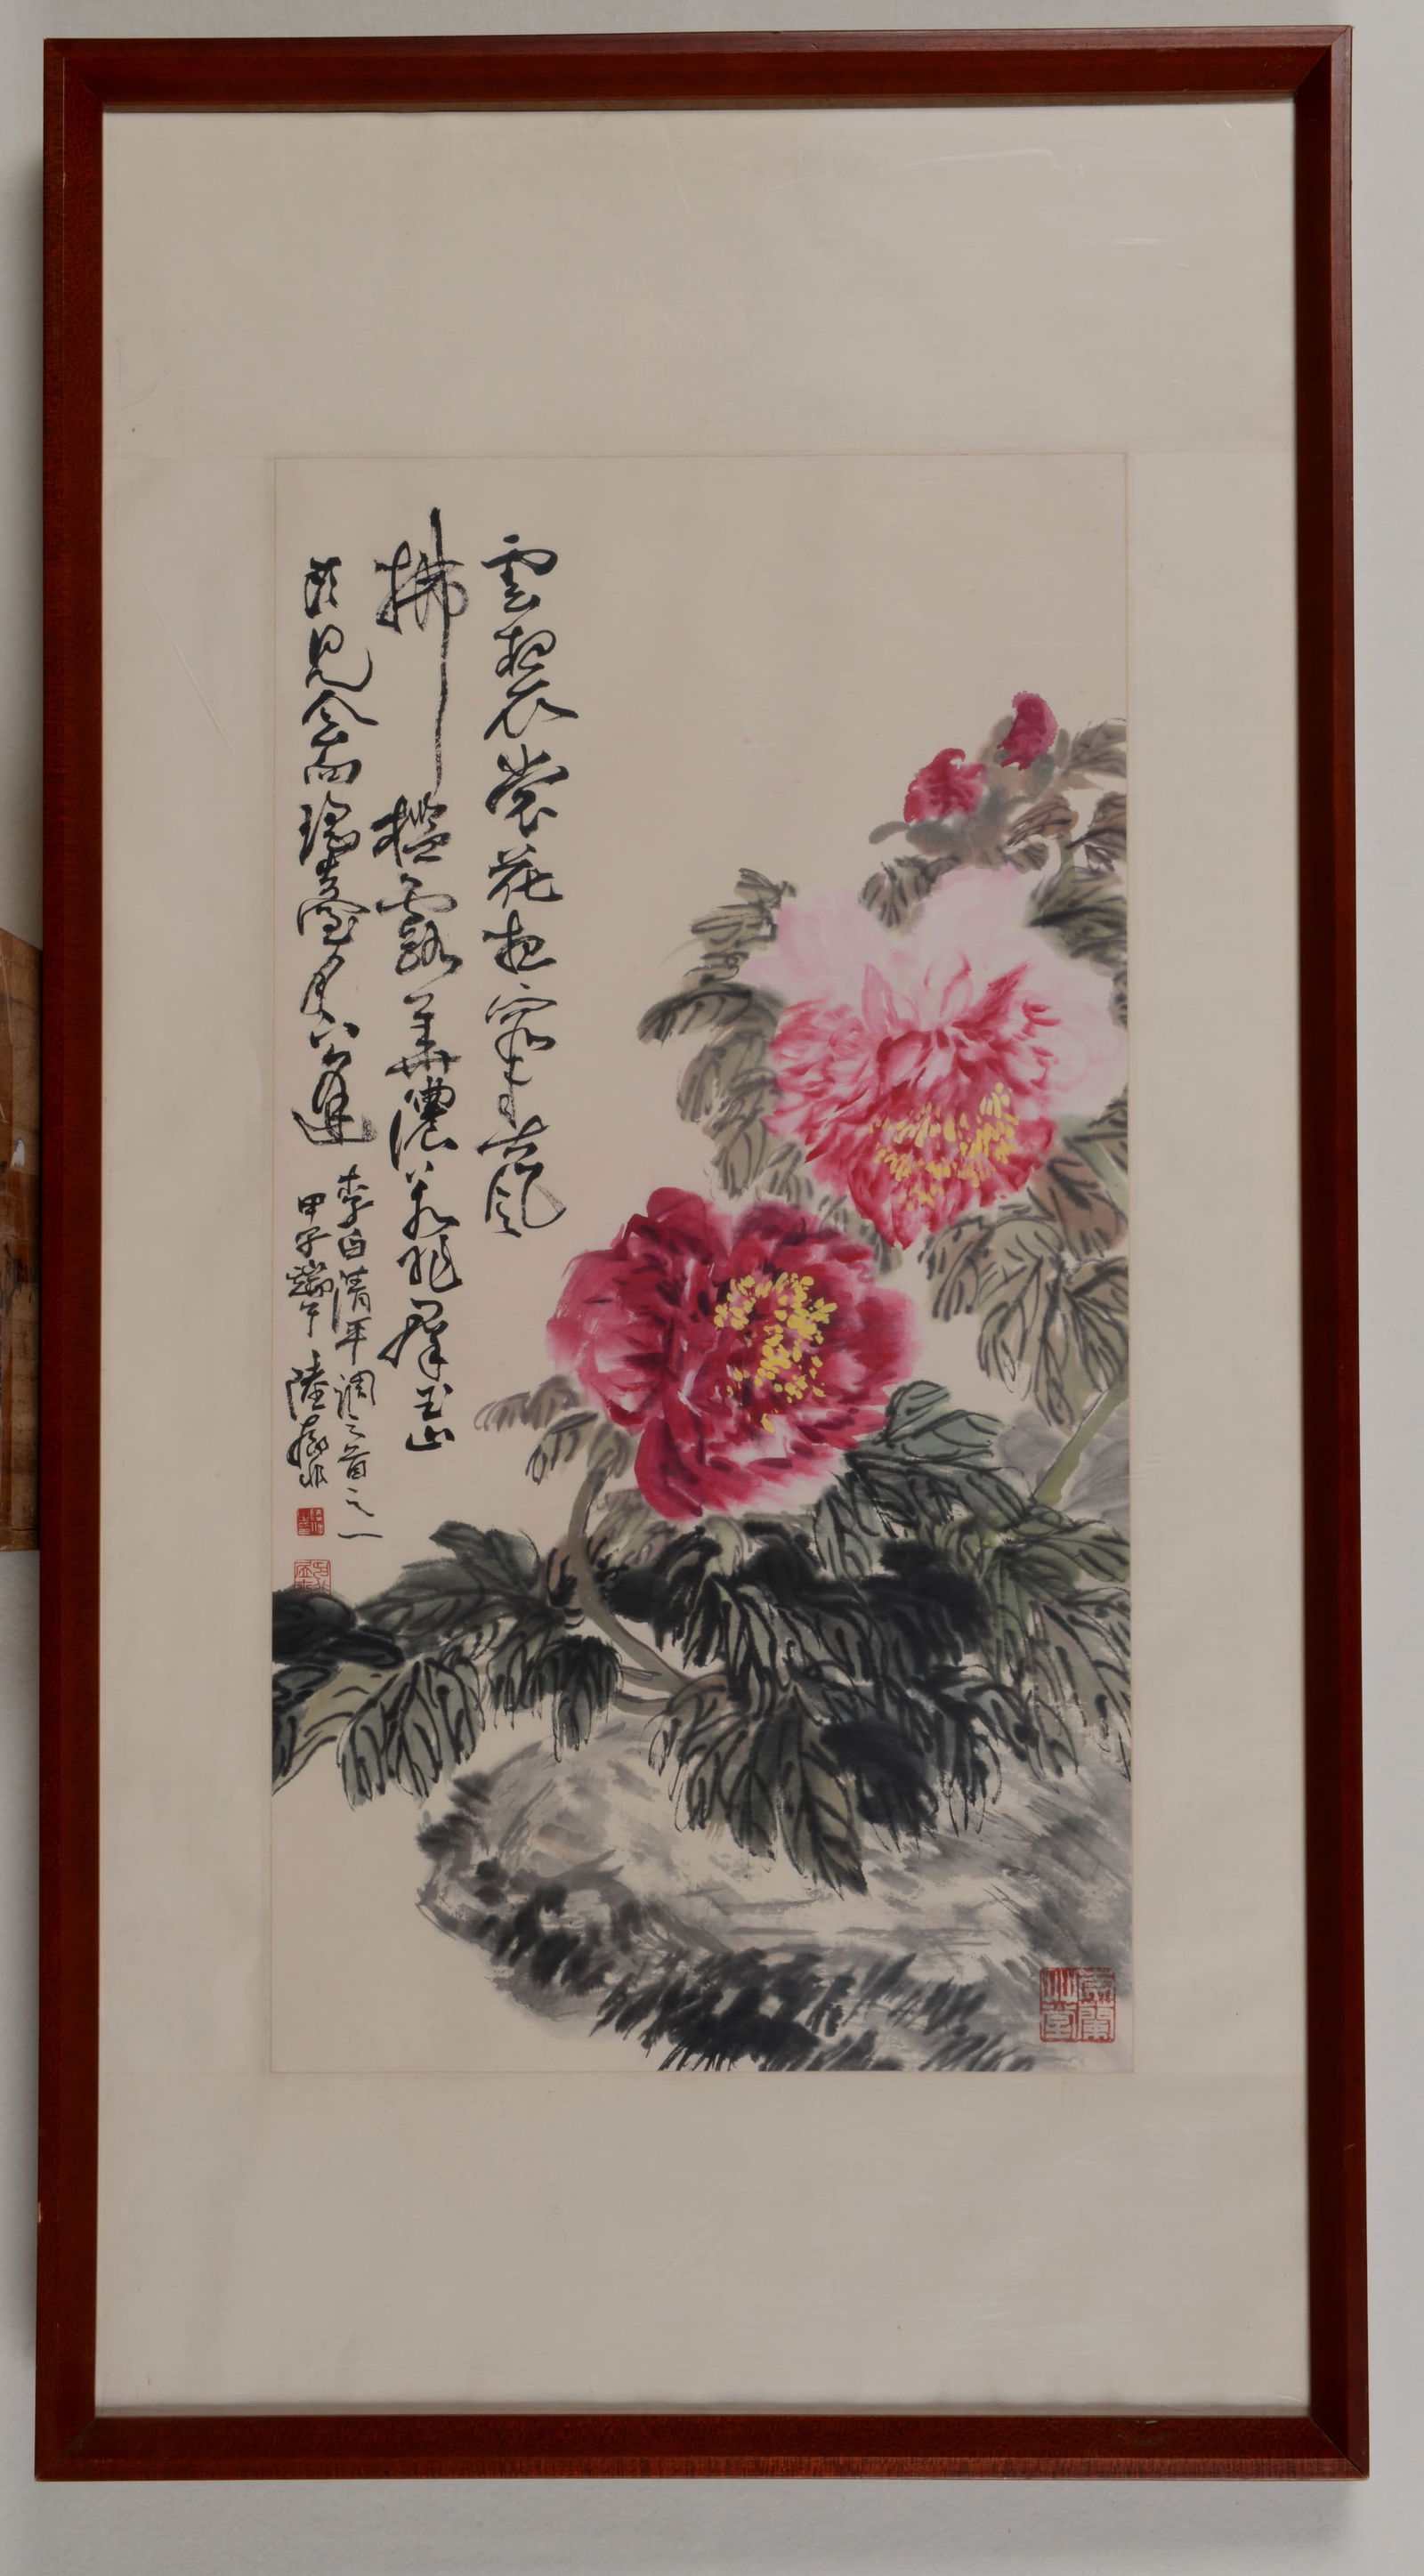 雲想衣裳花想容春風
拂檻露華濃若非羣玉山
頭見會向瑤臺月下逢
李白清平調三首之一
甲子端午 陸抑非